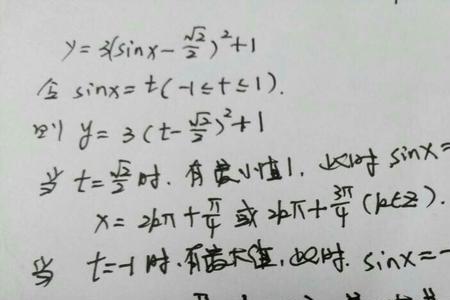 y=3(sinx-√2/2)²+1
令 sinx=t(-1≤t≤1).
则 y=3(t-√2/2)²+1
当 t=√2/2 时. 有最小值1, 此时 sinx=
x=2kπ+π/4 或 2kπ+3π/4 (k∈Z).
当 t=-1 时. 有最大值, 此时. sinx=-